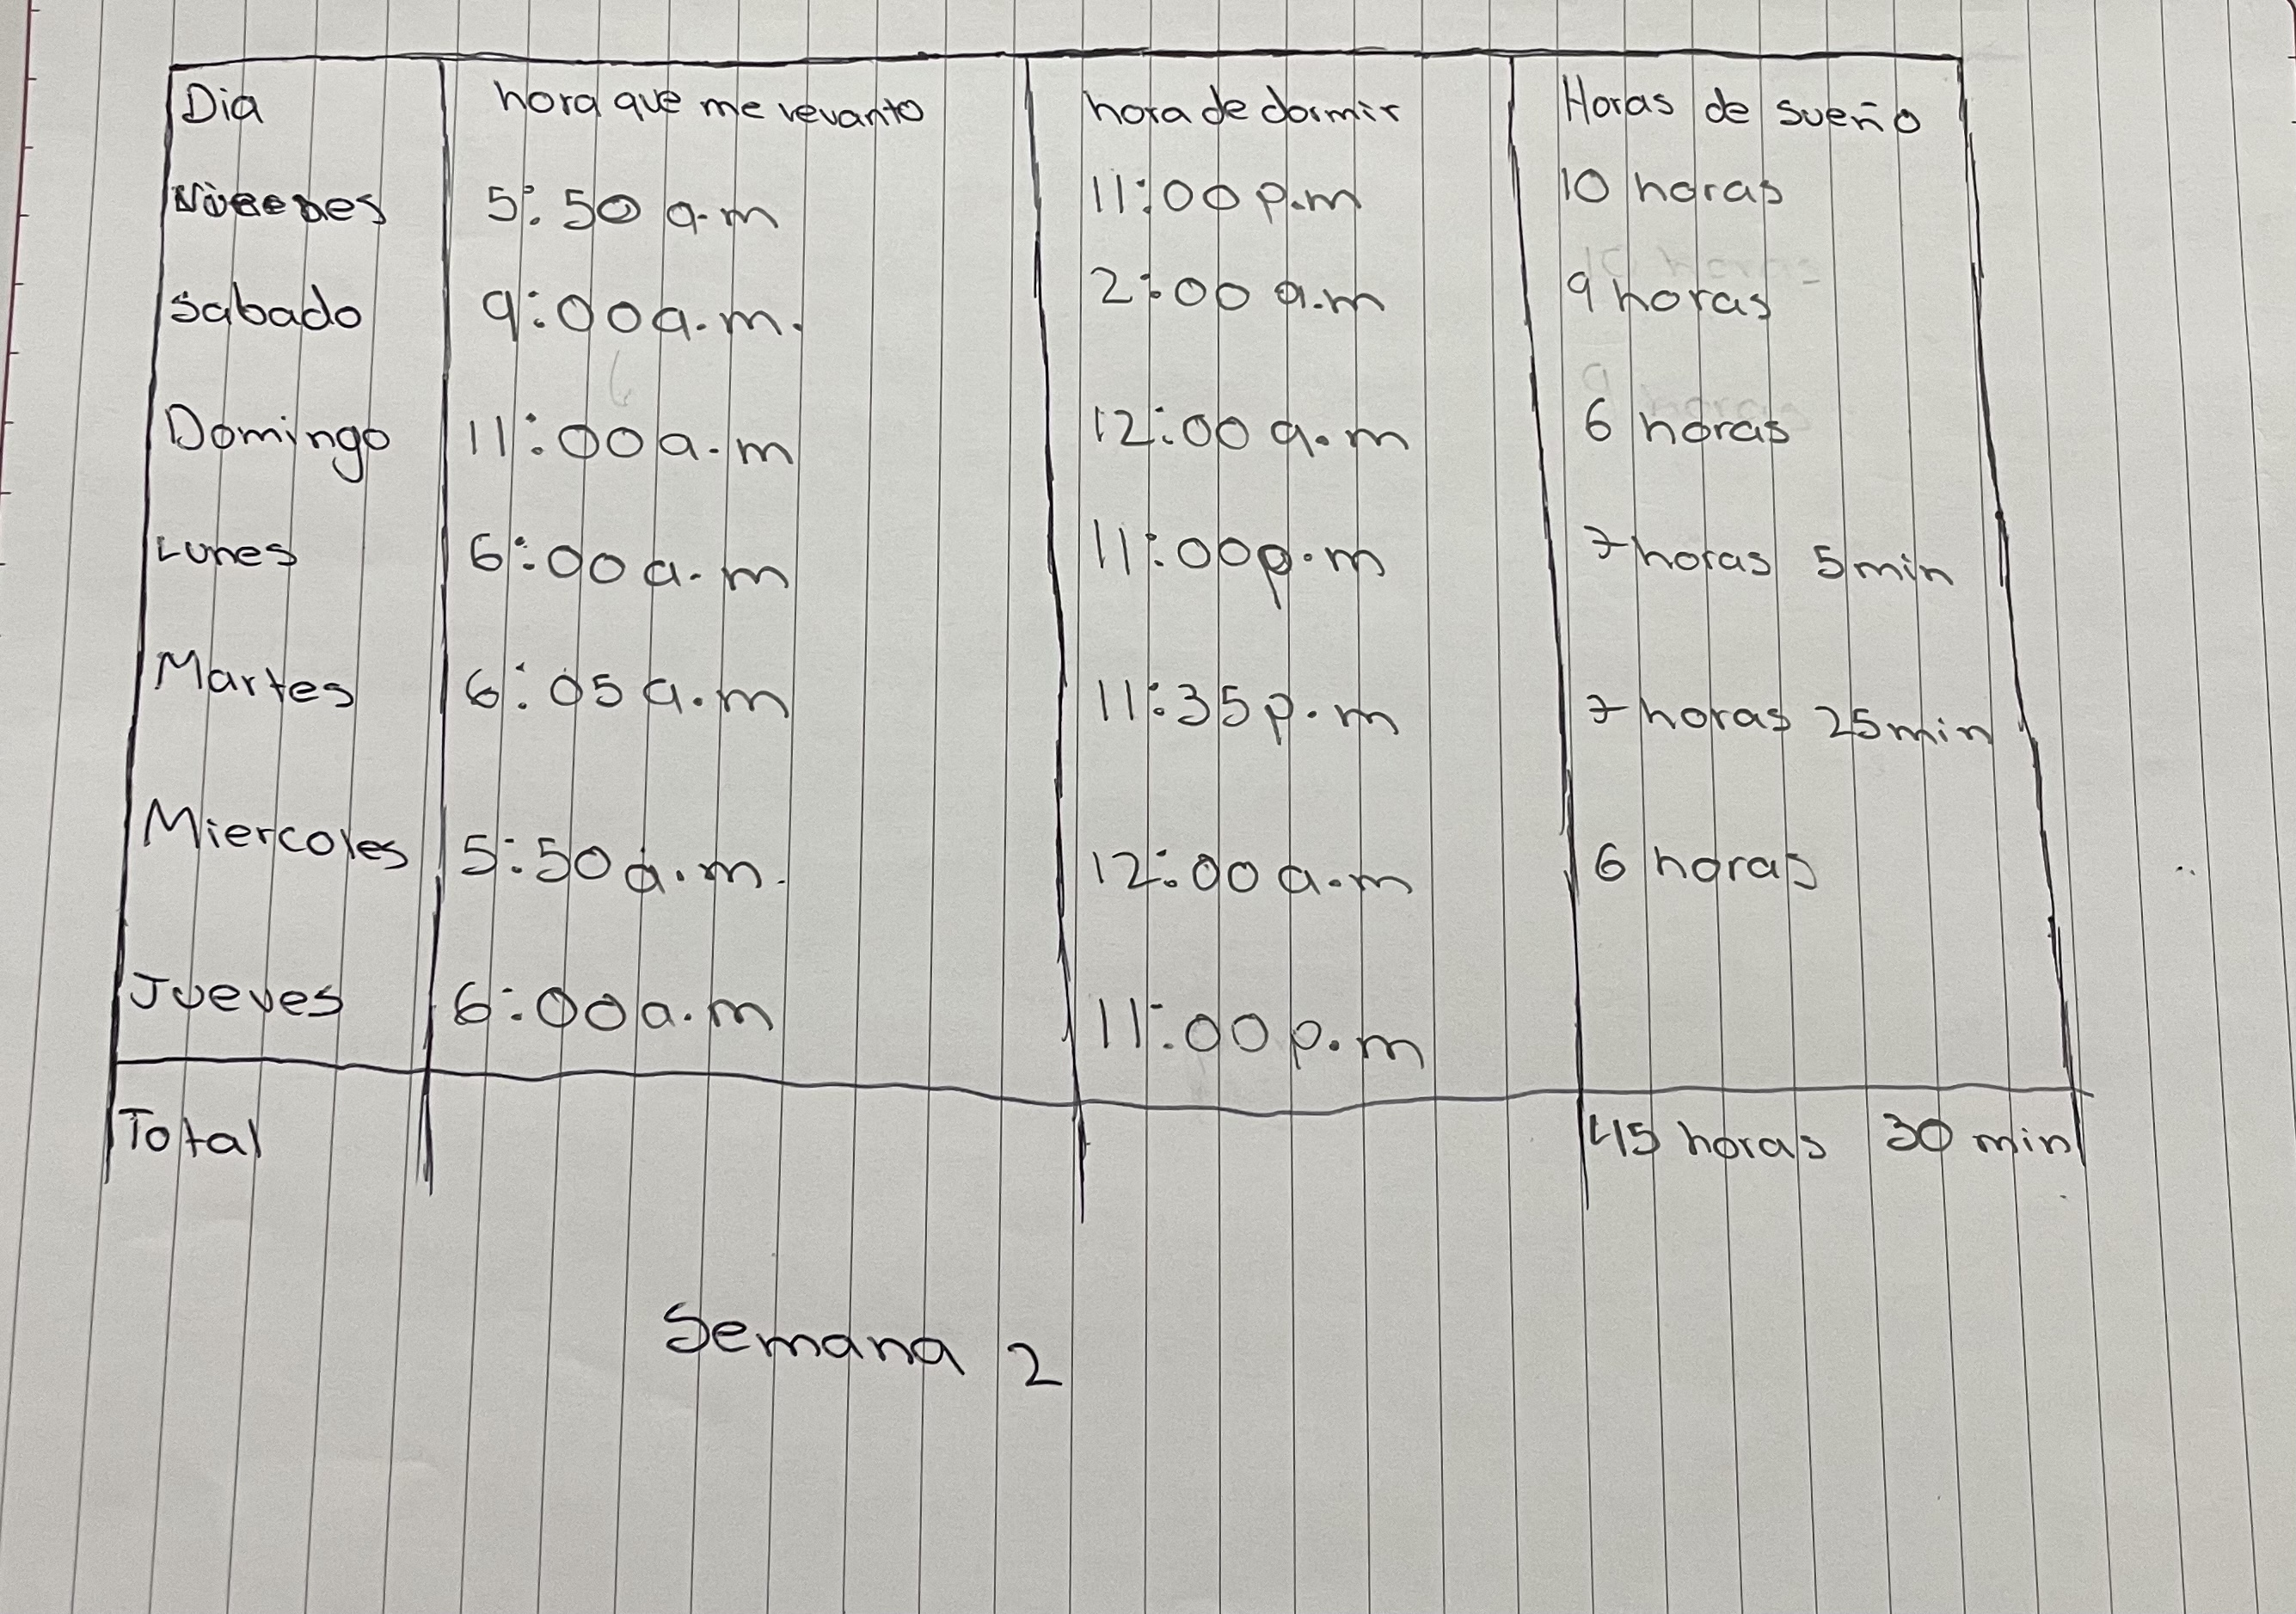 Dia hora que me levanto hora de dormir Horas de sueño
5:50 a.m 11:00 p.m 10 horas
Sabado 9:00 a.m. 2:00 a.m 9 horas
Domingo 11:00 a.m 12:00 a.m 6 horas
Lunes 6:00 a.m 11:00 p.m 7 horas 5 min
Martes 6:05 a.m 11:35 p.m 7 horas 25 min
Miercoles 5:50 a.m. 12:00 a.m 6 horas
Jueves 6:00 a.m 11:00 p.m
Total 45 horas 30 min
Semana 2